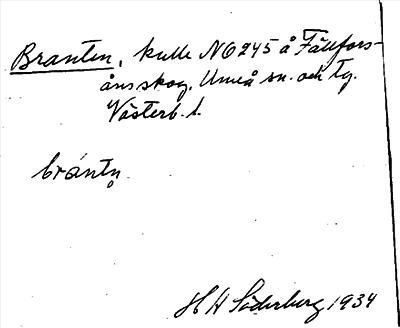 Branten, kulle NO 245 å Fällfors-
åns skog, Umeå sn. och tg.
Västerb. l.
brántn̥
H H Söderberg 1934